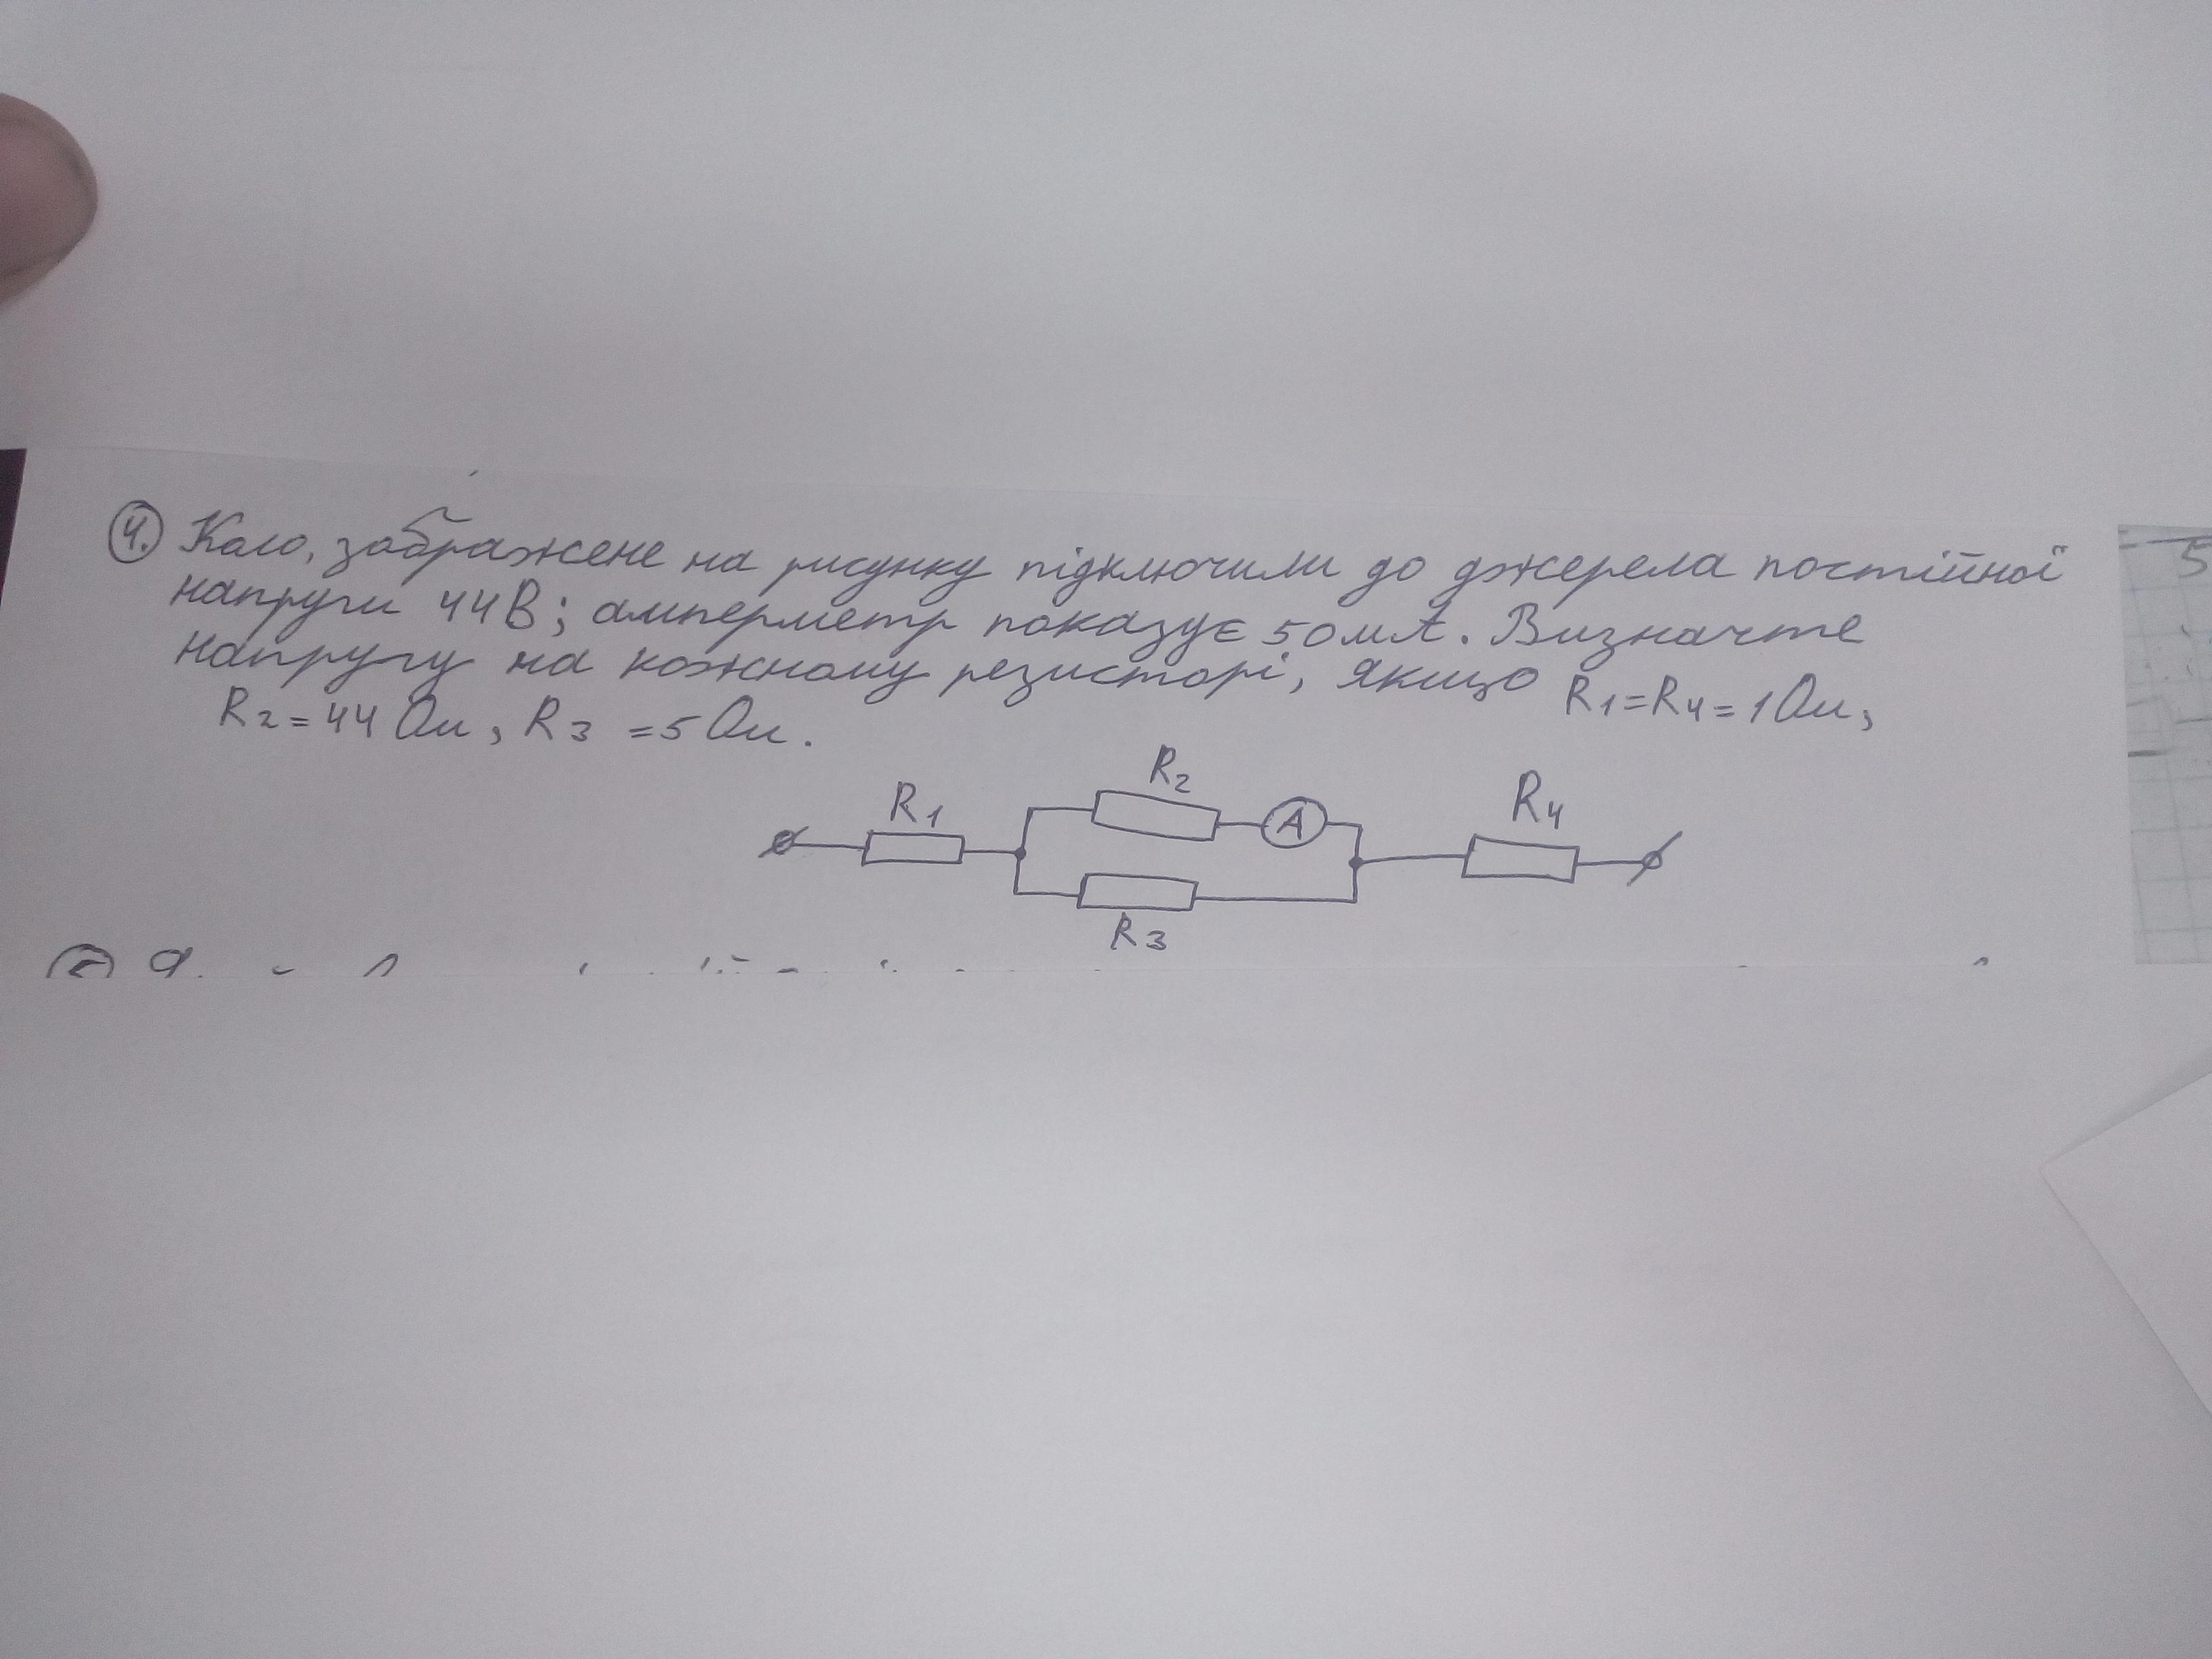 4. Коло, зображене на рисунку підключили до джерела постійної
напруги 44В; амперметр показує 50мА. Визначте
напругу на кожному резисторі, якщо R1=R4=1Ом,
R2=44 Ом, R3 =5 Ом.
R2
R1
A
R4
R3
5